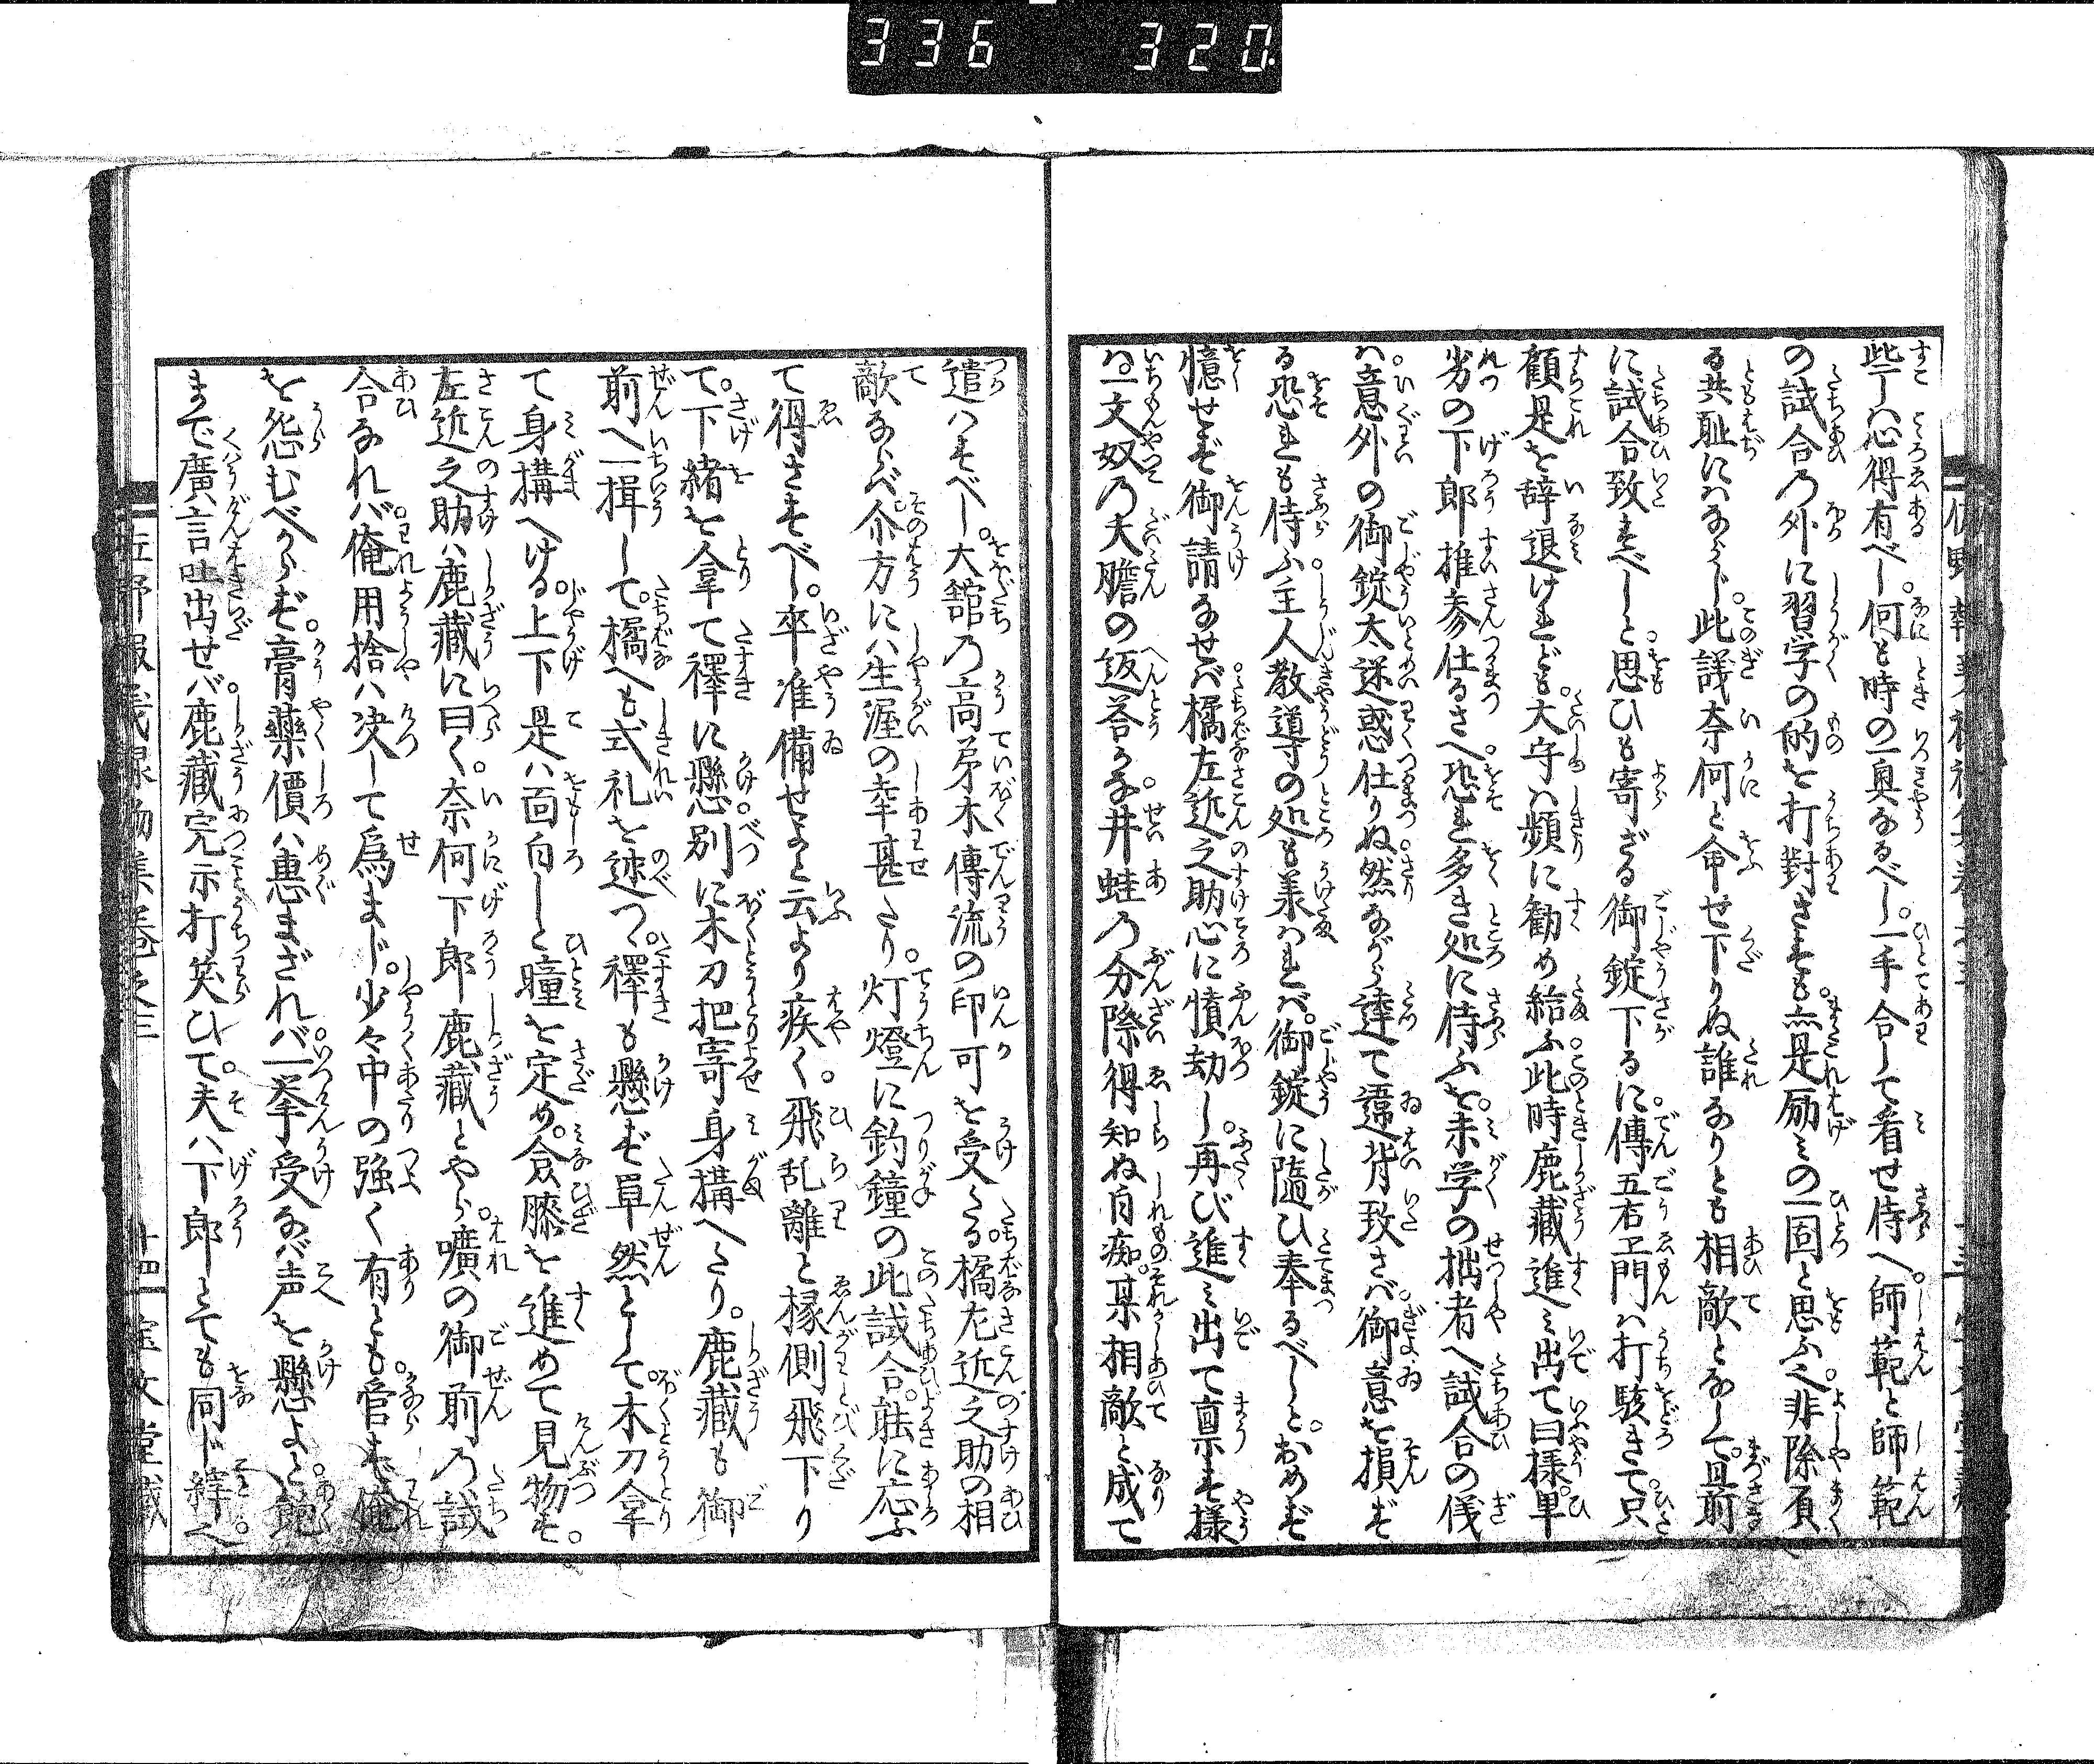 336 320
些ハ心得有べし。何と時の一奥なるべし。一手合して看せ侍へ。師範と師範
の試合乃外に習学の的を打對さするも。亦是励ミの一固と思ふ之。非除負
る共恥にハならじ。此議奈何と命せ下りぬ誰なりとも相敵となして。且前
に試合致すべしと。思ひも寄ざる御錠下るに。傳五右エ門ハ打駭きて。只
顧是を辞退けれども。大守ハ頻に勧め給ふ。此時鹿藏進ミ出て曰様。卑
劣の下郎推参仕るさへ。恐れ多き処に侍ふを。未学の拙者へ試合の儀
ハ。意外の御錠太迷惑仕りぬ。然ながら達て違背致さバ。御意を損ず
る恐れも侍ふ。主人教導の処も羕ハれバ。御錠に隨ひ奉るべしと。おめず
憶せず御請なせバ。橘左近之助心に憤劫し。再び進ミ出て禀す様
ハ。一文奴乃大膽の返荅かな。井蛙乃分際得知ぬ白痴。某相敵と成て
遣ハすべし。大舘乃高弟木傳流の印可を受たる。橘左近之助の相
敵ならバ。尒方にハ生涯の幸甚たり。灯燈に釣鐘の此試合。能に応ふ
て得さすべし。卒准備せよと云より疾く。飛乱離と椽側飛下り
て。下緒を拿て襷に懸。別に木刀把寄身構へたり。鹿藏も御
前へ一揖して。橘へも式礼を述つ。襷も懸ず単然として。木刀拿
て身構へける。上下是ハ面白しと瞳を定め。僉膝を進めて見物す。
左近之助ハ鹿藏に曰く。奈何下郎鹿藏とやら。曠の御前乃試
合なれバ。俺用捨ハ决して爲まじ。少々中の強く有とも。管ず俺
を怨むべからず。膏藥價ハ惠まざれバ。一拳受なバ声を懸よと。飽
まで廣言吐出せバ。鹿藏完示打笑ひて。夫ハ下郎とても同じ縡之。